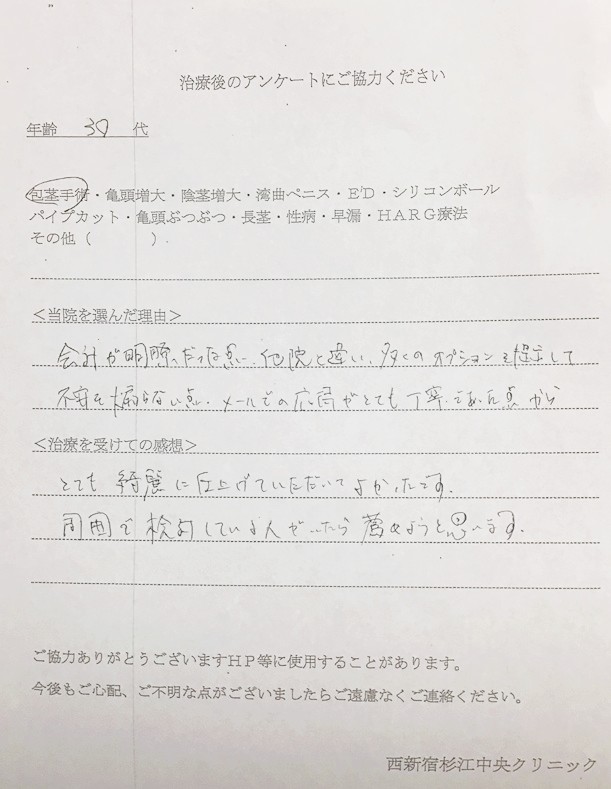 治療後のアンケートにご協力ください
年齢 30 代
包茎手術・亀頭増大・陰茎増大・湾曲ペニス・ED・シリコンボール
パイプカット・亀頭ぶつぶつ・長茎・性病・早漏・HARG療法
その他（ ）
＜当院を選んだ理由＞
会計が明瞭だった点、他院と違い、多くのオプションを提示して
不安を煽らない点、メールでの応答がとても丁寧であった点から
＜治療を受けての感想＞
とても綺麗に仕上げていただいてよかったです。
周囲で検討している人がいたら薦めようと思います。
ご協力ありがとうございますHP等に使用することがあります。
今後もご心配、ご不明な点がございましたらご遠慮なくご連絡ください。
西新宿杉江中央クリニック